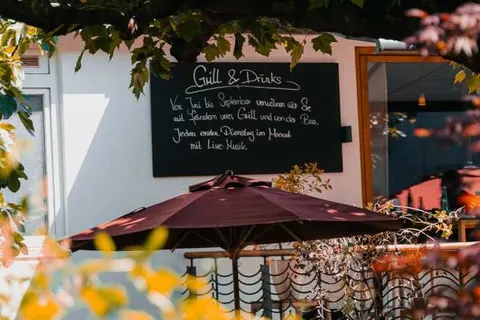 Grill & Drinks
Von Juni bis September verwöhnen wir Sie
mit Ständern vom Grill und von der Bar.
Jeden ersten Dienstag im Monat
mit Live Musik.